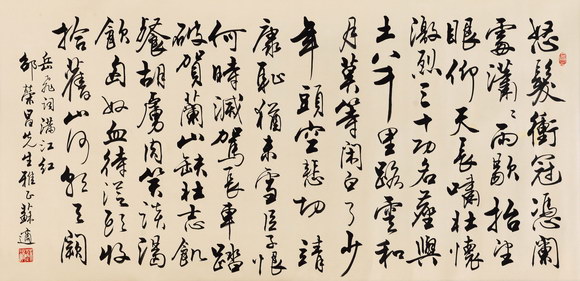 怒髮衝冠憑闌
處瀟々雨歇抬望
眼仰天長嘯壯懷
激烈三十功名塵與
土八千里路雲和
月莫等閑白了少
年頭空悲切靖
康恥猶未雪臣子恨
何時滅駕長車踏
破賀蘭山缺壯志飢
餐胡虜肉笑談渴
飲匈奴血待從頭收
拾舊山河朝天闕
岳飛詞滿江紅
榮昌先生雅正蘇適